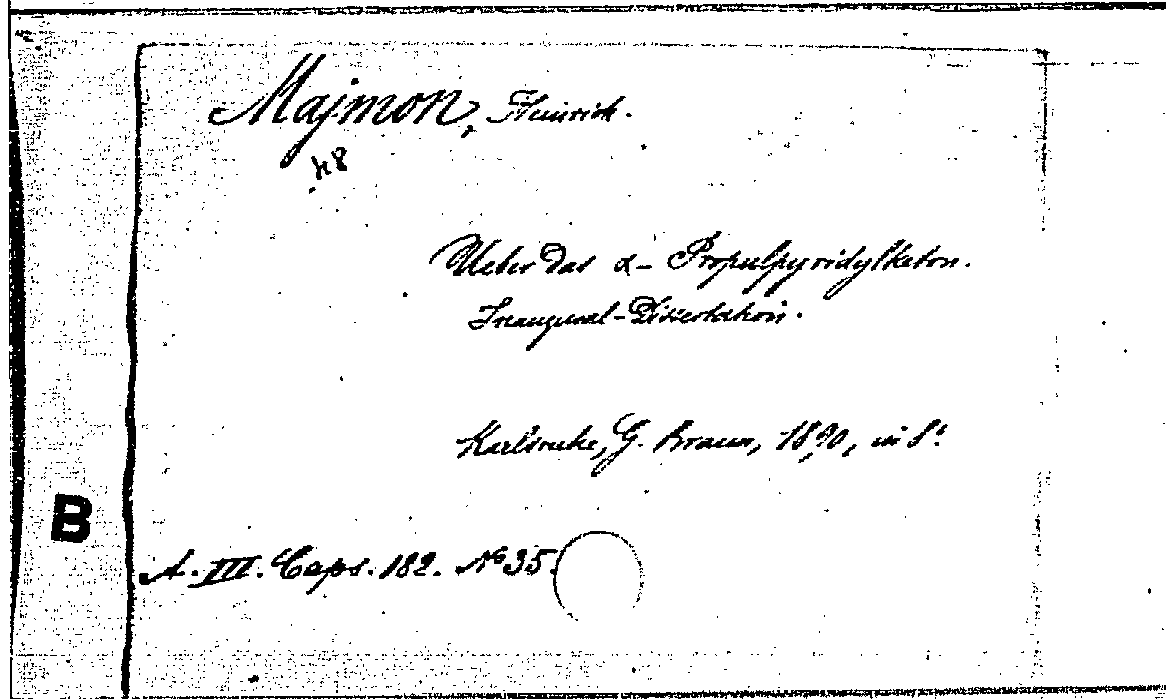 Majmon, Heinrich.
48
Ueber das α-Propylpyridylketon.
Inaugural-Dissertation.
Karlsruhe, G. Braun, 1890, in 8°.
B
A. III. Caps. 182. No 35.